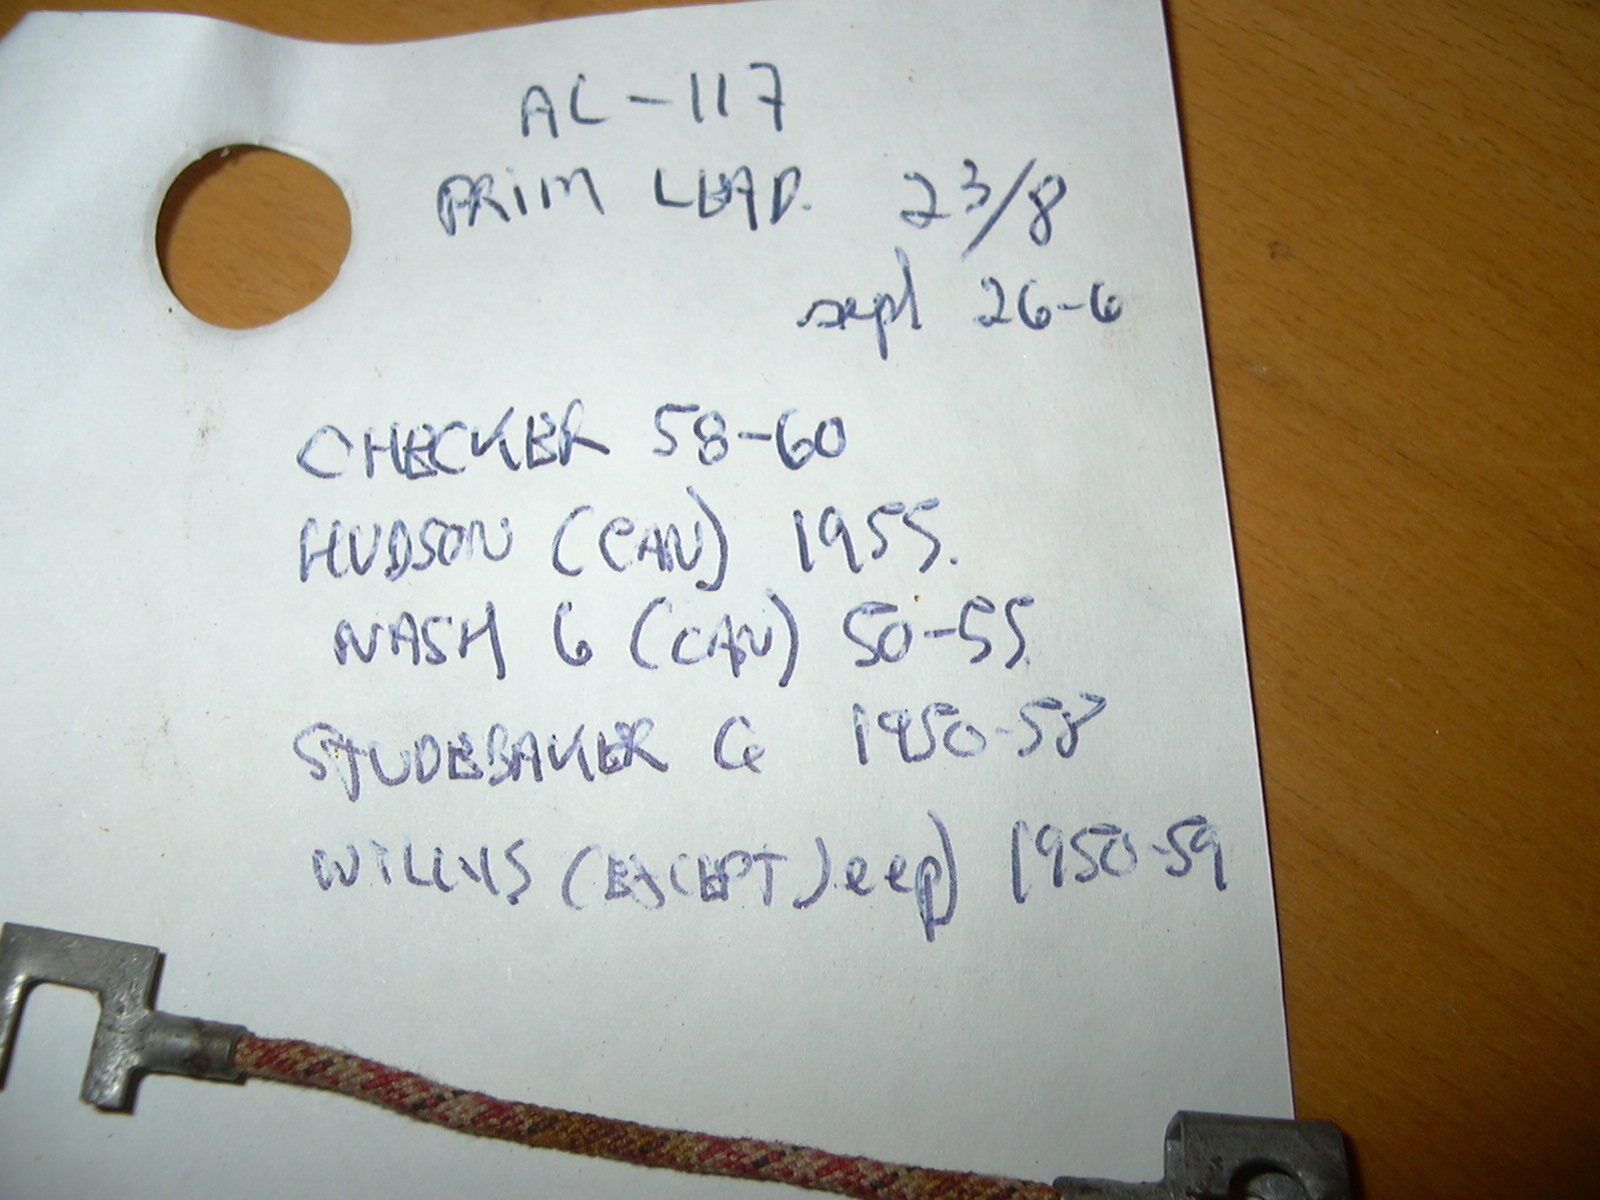 AL-117
PRIM LEAD. 2 3/8
sepl 26-6
CHECKER 58-60
HUDSON (CAN) 1955.
NASH 6 (CAN) 50-55.
STUDEBAKER 6 1950-58
WILLYS (EXCEPT Jeep) 1950-59